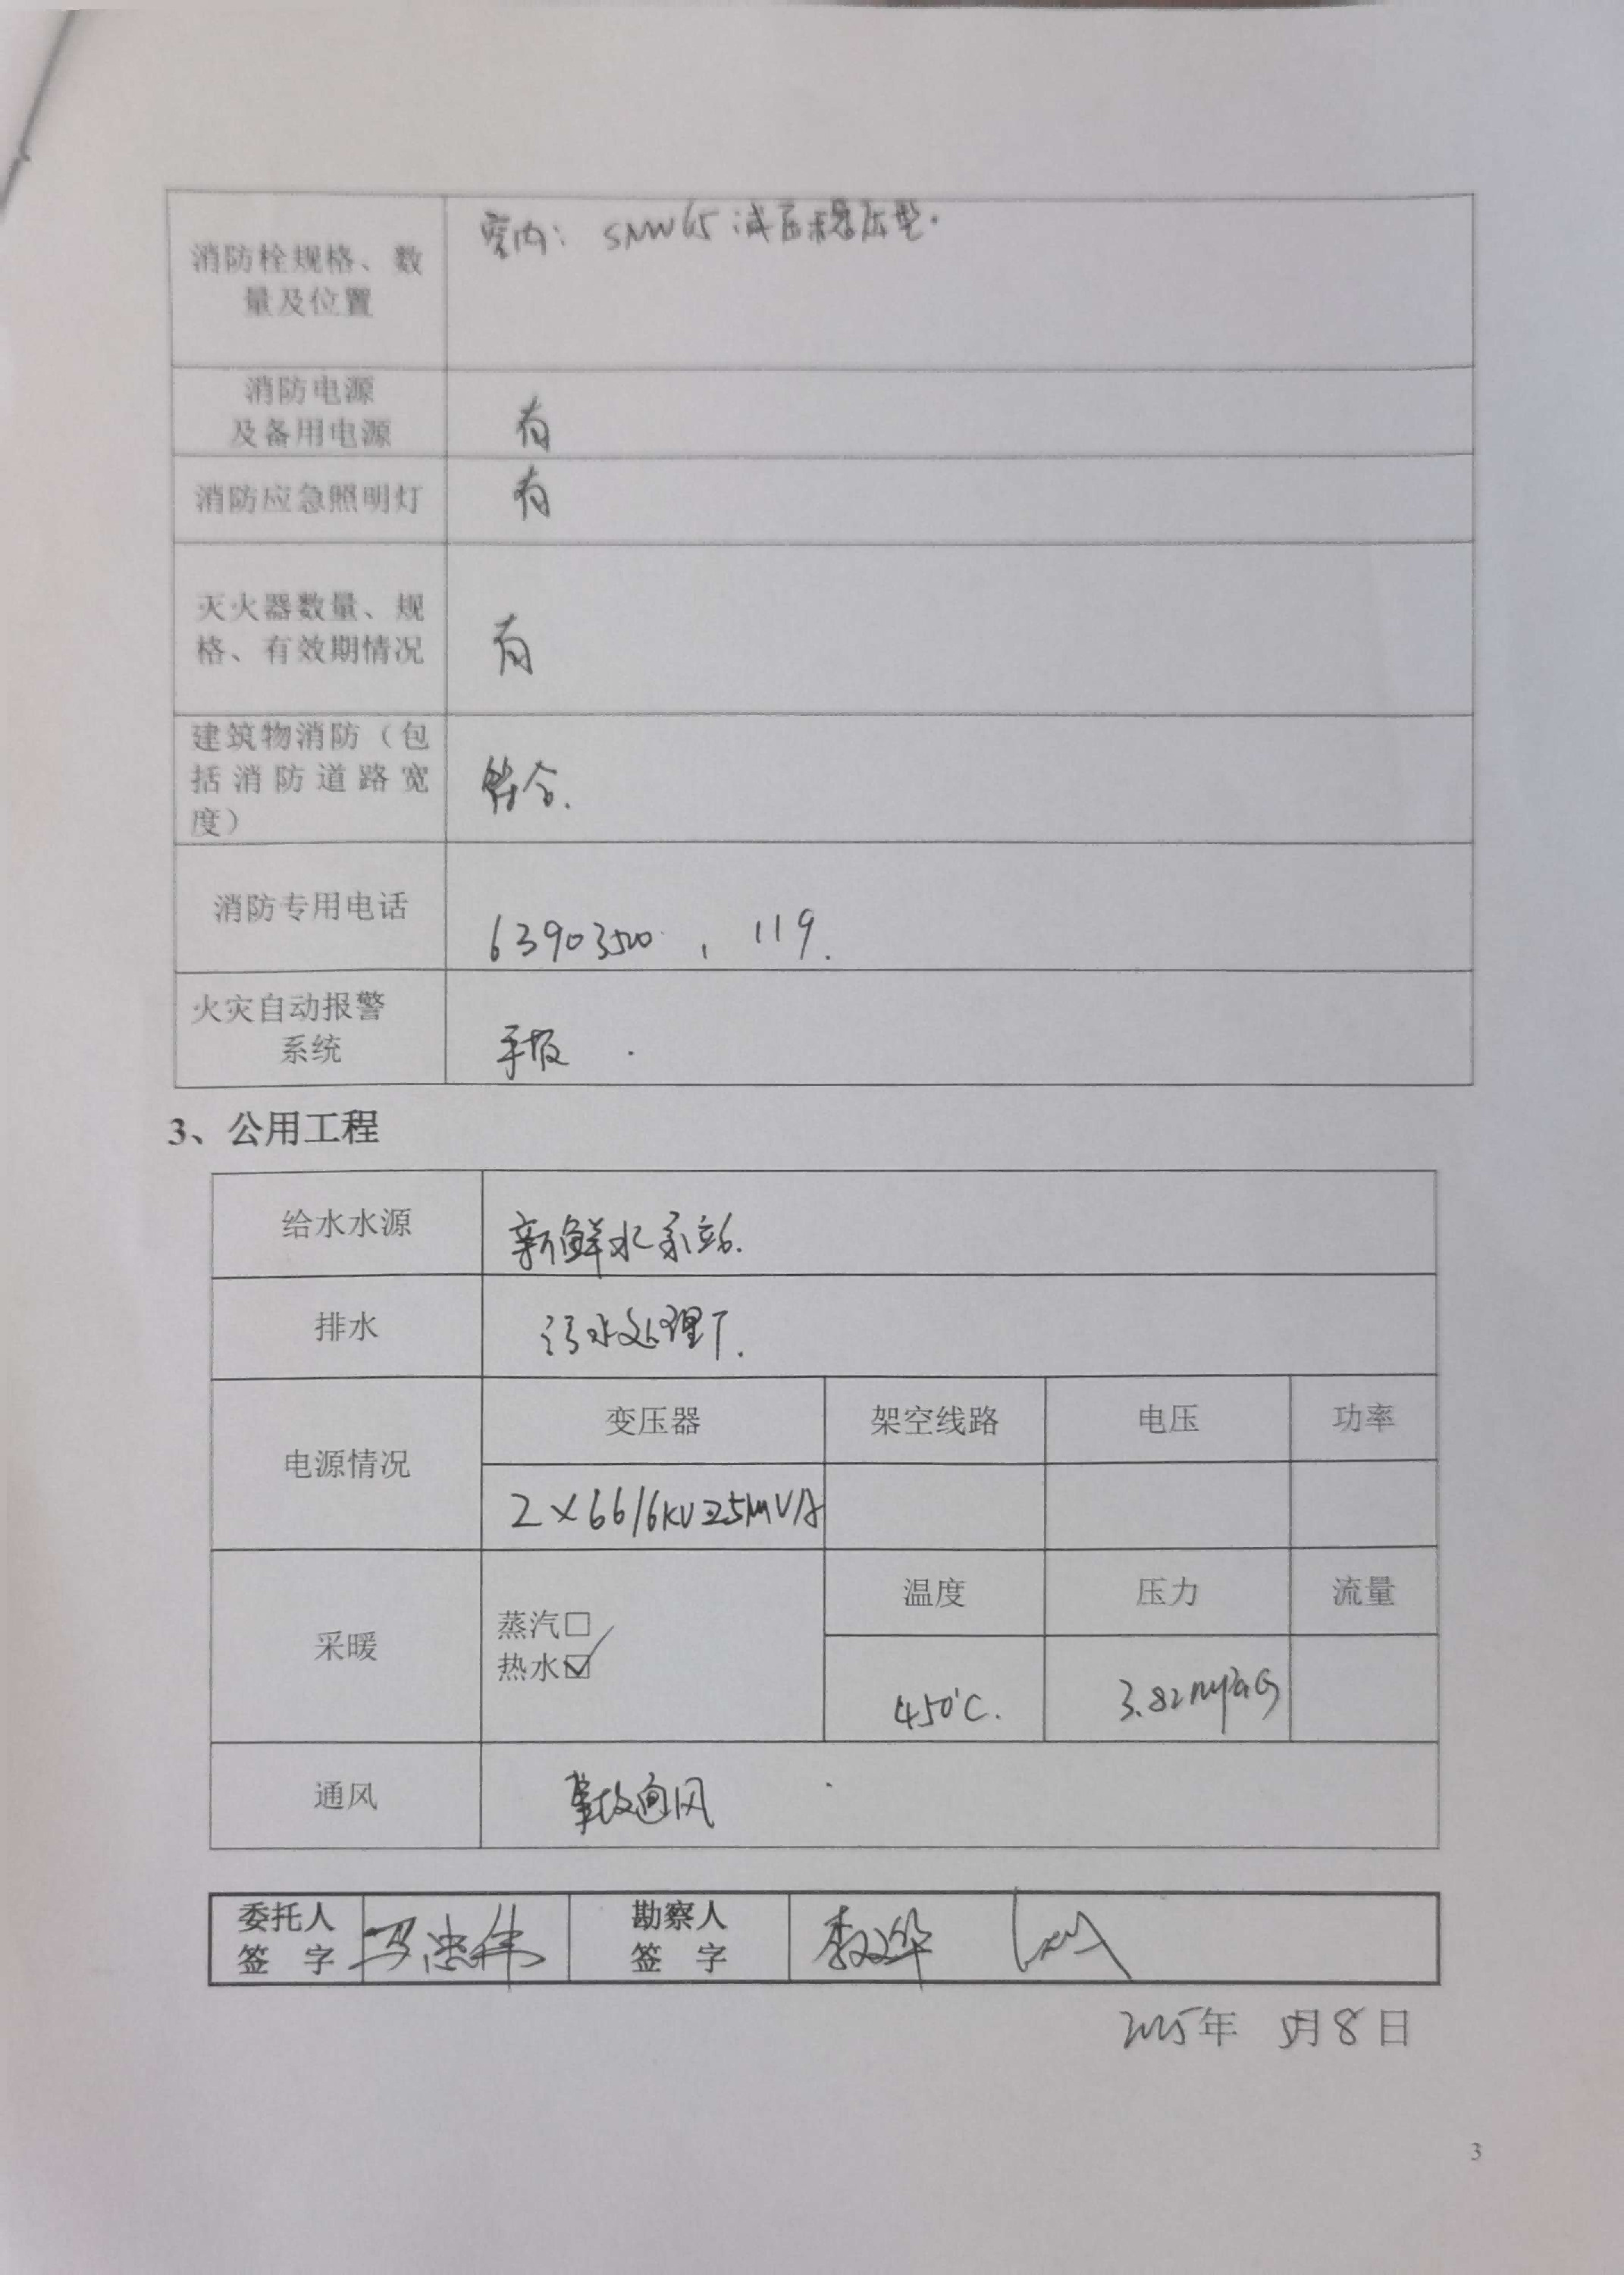 消防栓规格、数
量及位置
室内：SNW65减压稳压型.
消防电源
及备用电源
有
消防应急照明灯
有
灭火器数量、规
格、有效期情况
有
建筑物消防（包
括消防道路宽
度）
符合.
消防专用电话
63903500，119.
火灾自动报警
系统
手报.
3、公用工程
给水水源
新鲜水泵站.
排水
污水处理厂.
电源情况
变压器 架空线路 电压 功率
2×66/6KV 25MVA
采暖
蒸汽□
热水☑
温度 压力 流量
450℃. 3.82MPaG
通风
事故通风
委托人
签 字
勘察人
签 字
2025年 5月8日
3